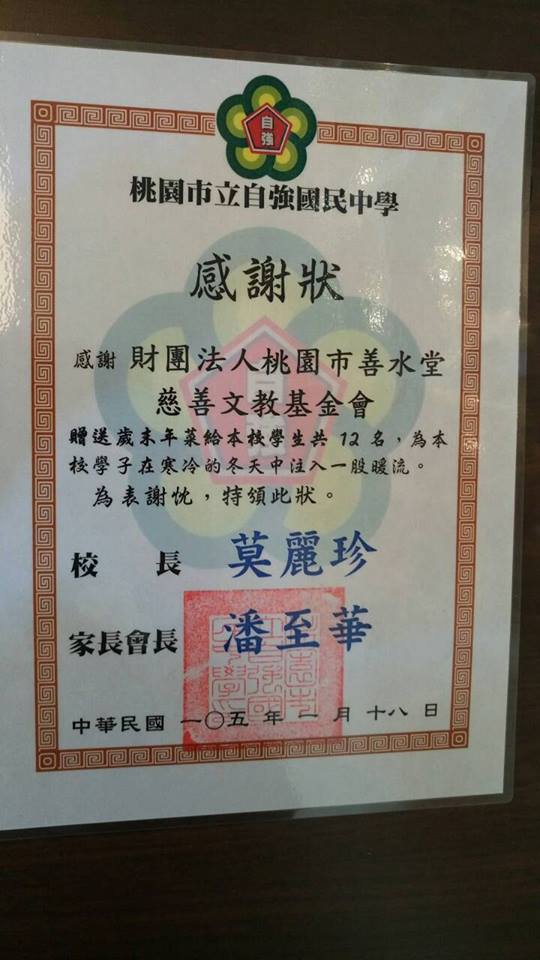 自
強
桃園市立自強國民中學
感謝狀
感謝 財團法人桃園市善水堂
慈善文教基金會
贈送歲末年菜給本校學生共 12 名，為本
校學子在寒冷的冬天中注入一股暖流。
為表謝忱，特頒此狀。
校 長 莫麗珍
家長會長 潘至華
中華民國 一〇五 年 一 月 十八 日